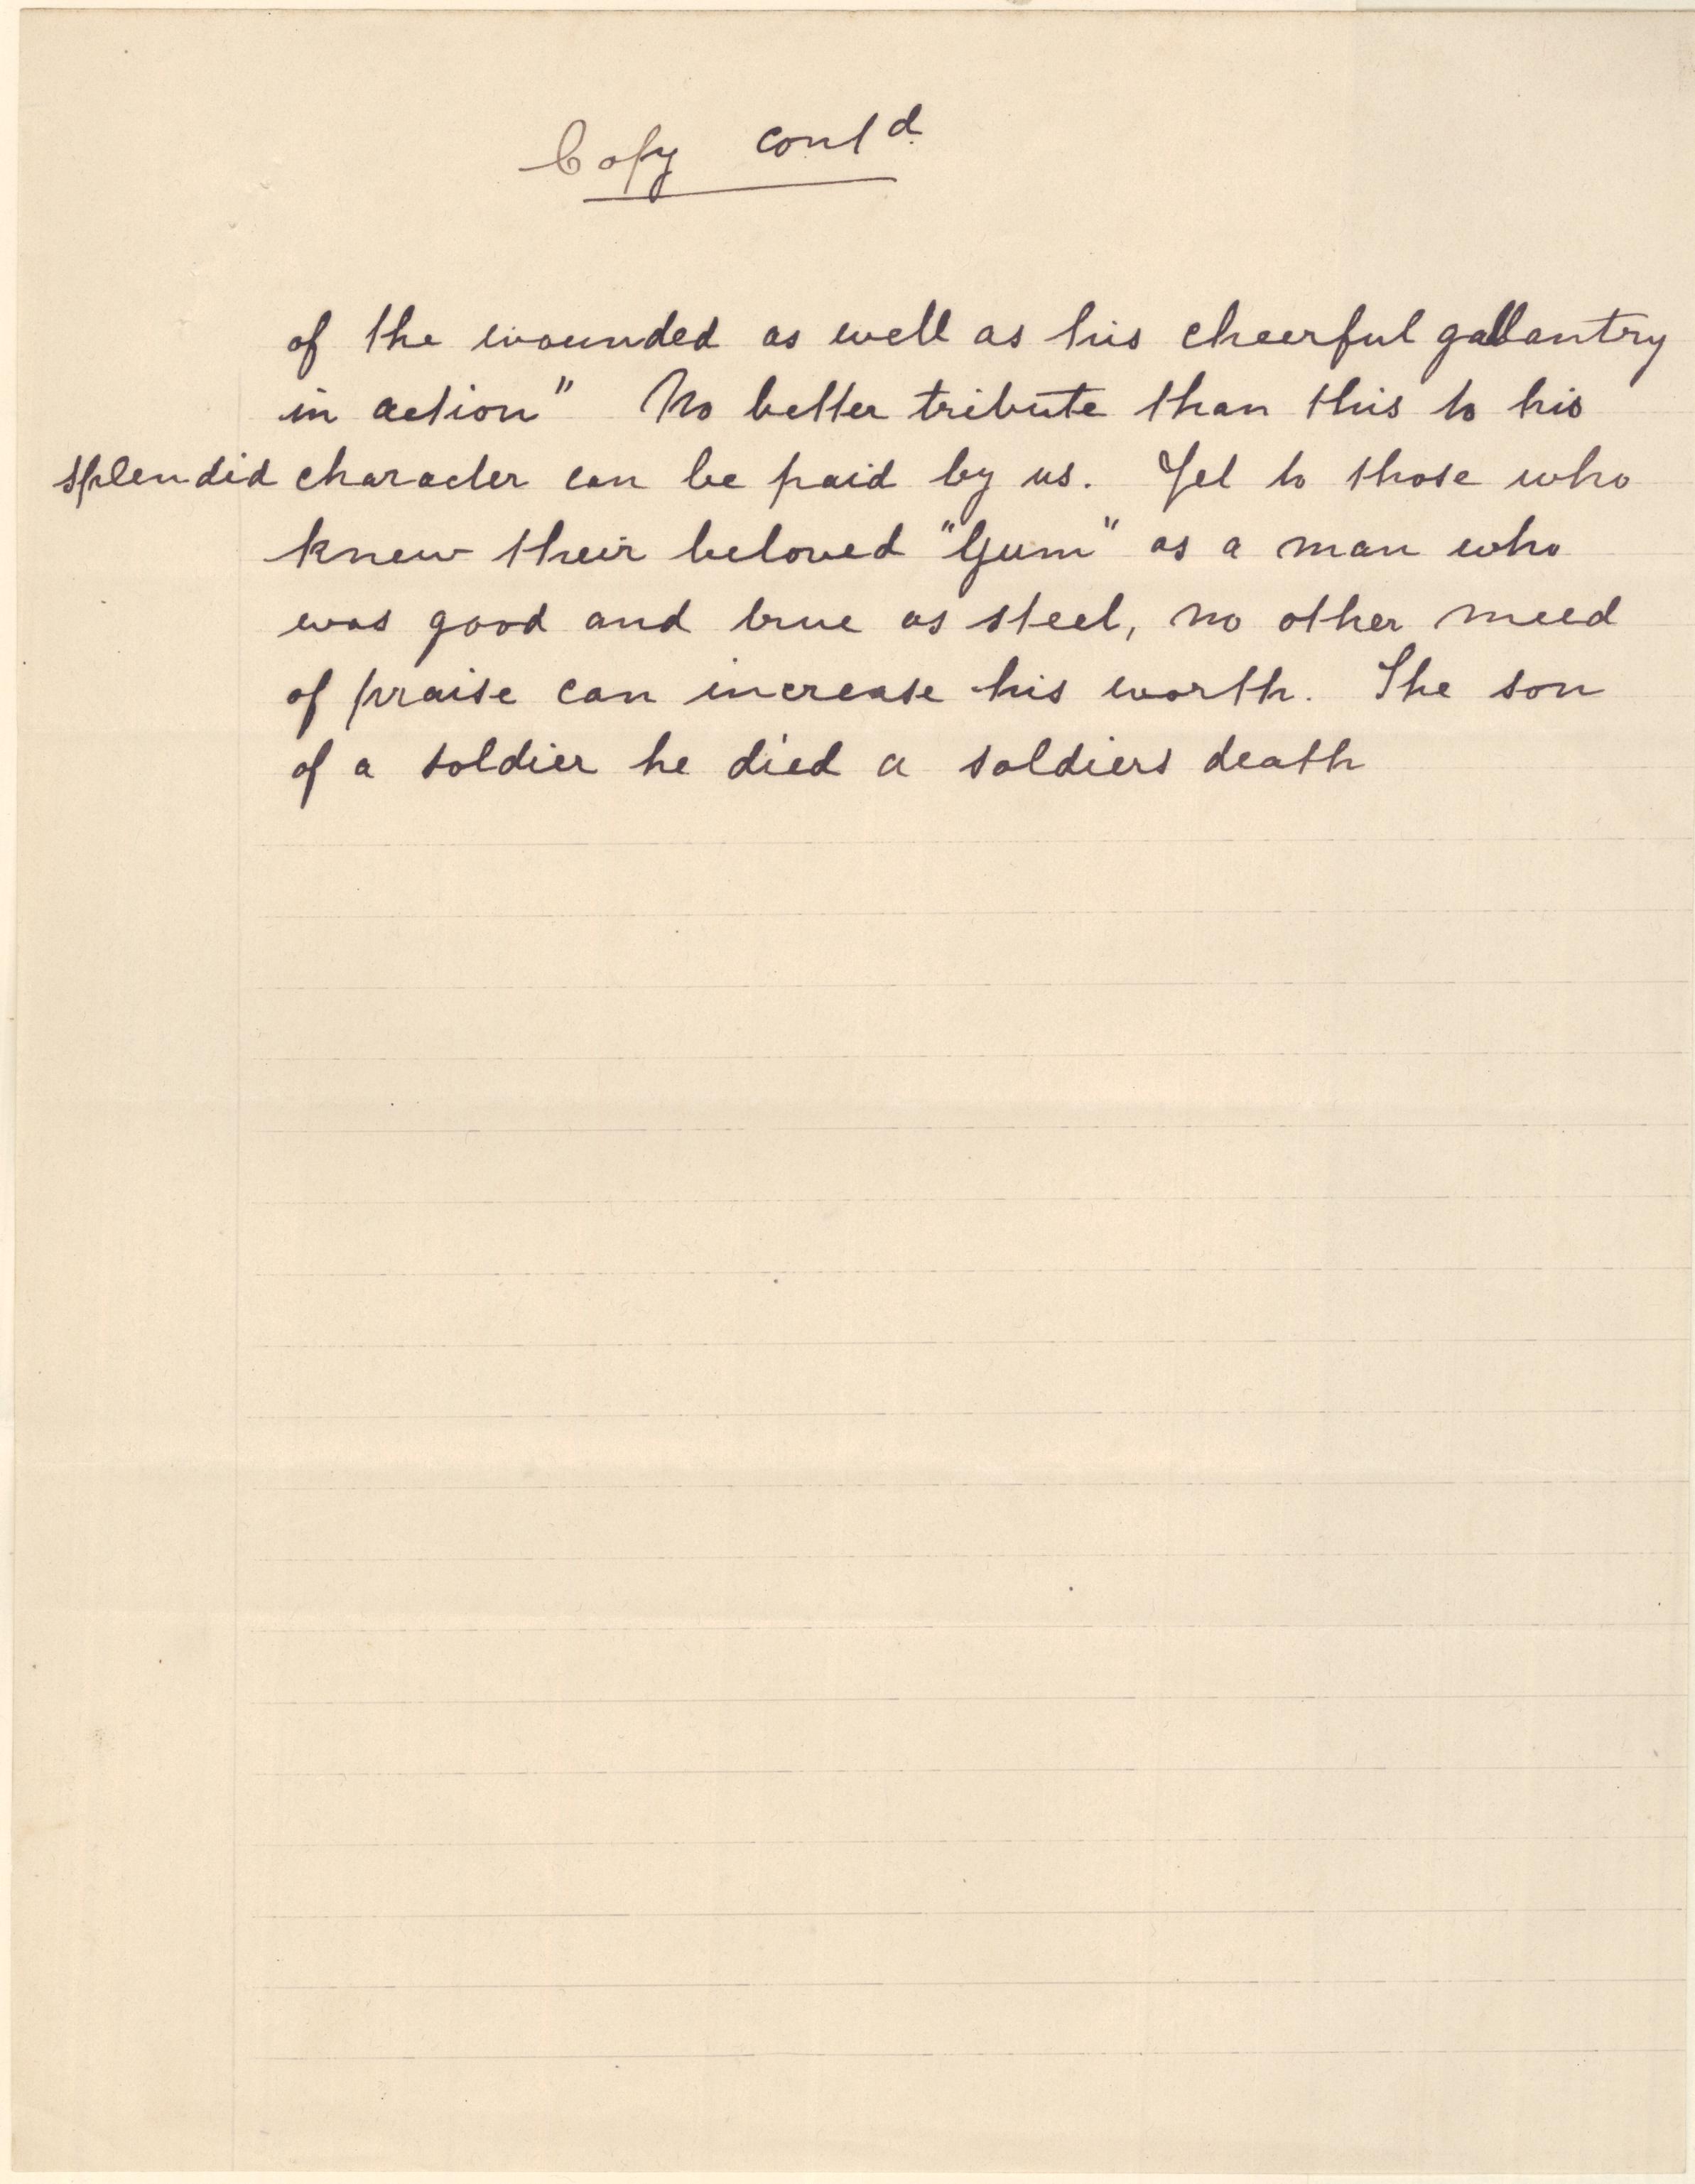 Copy contd.
of the wounded as well as his cheerful gallantry
in action" No better tribute than this to his
splendid character can be paid by us. Yet to those who
knew their beloved "Gum" as a man who
was good and true as steel, no other meed
of praise can increase his worth. The son
of a soldier he died a soldiers death